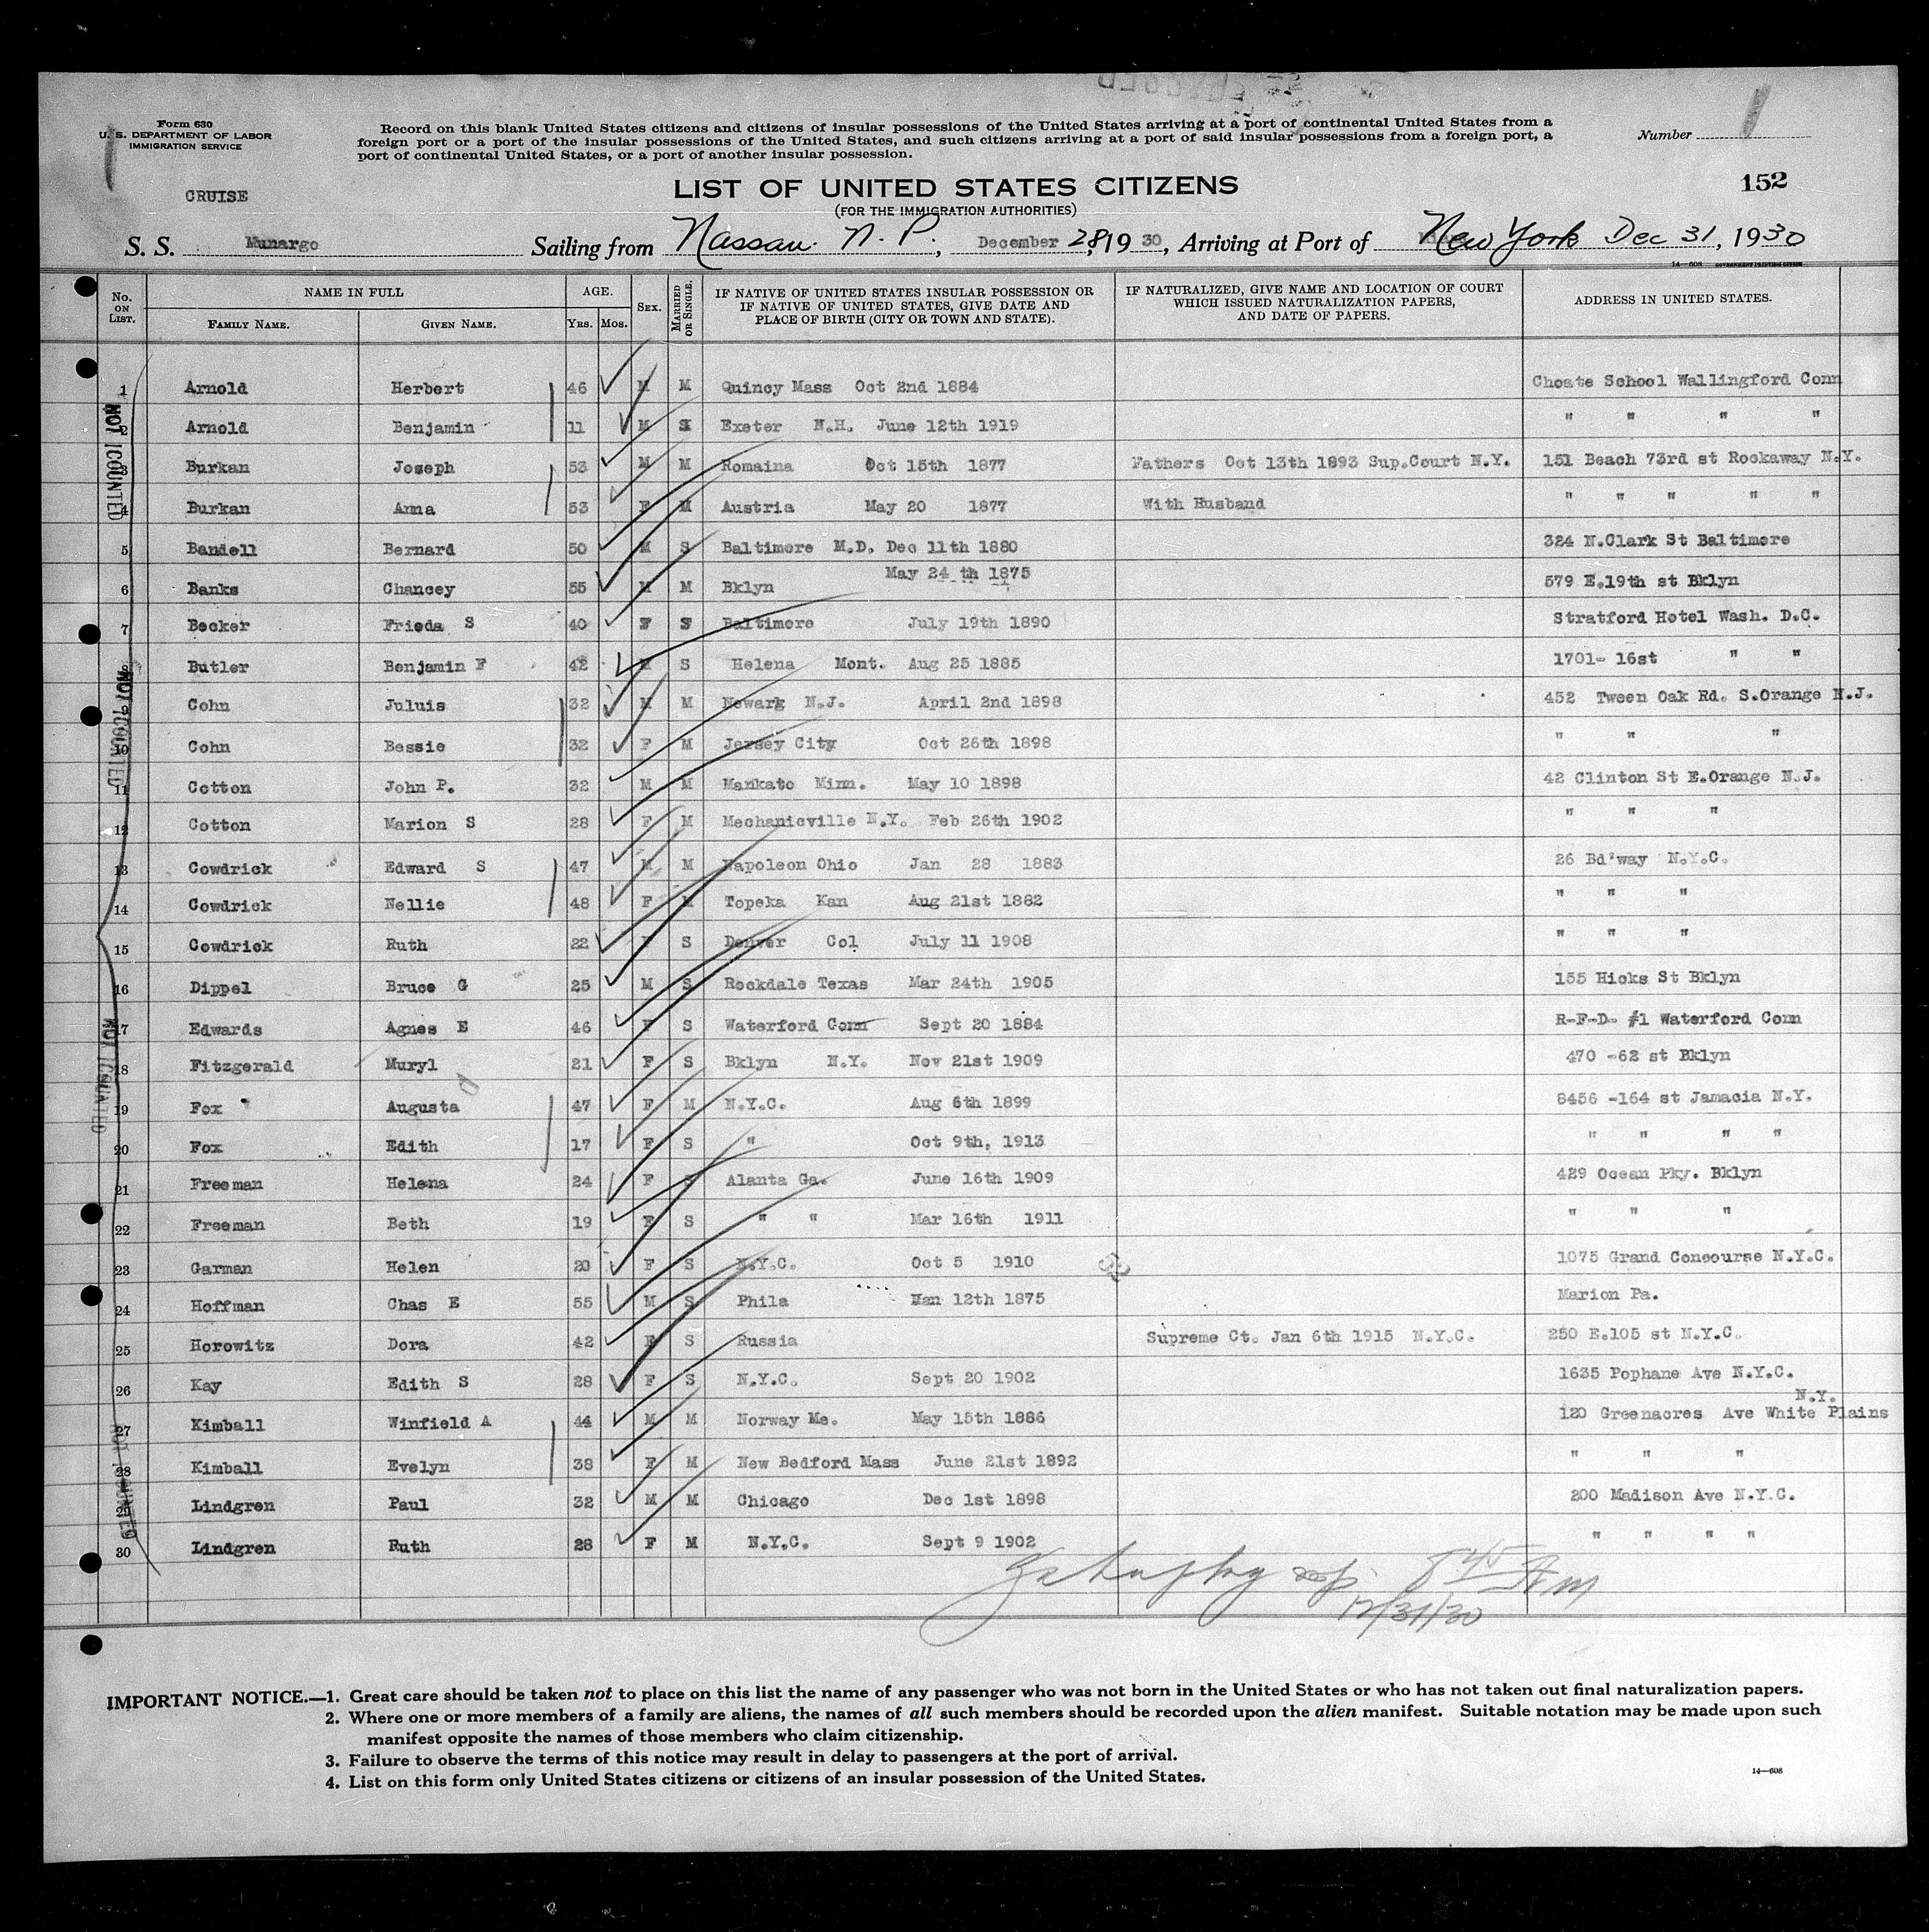 Form 630
U. S. DEPARTMENT OF LABOR
IMMIGRATION SERVICE
Record on this blank United States citizens and citizens of insular possessions of the United States arriving at a port of continental United States from a
foreign port or a port of the insular possessions of the United States, and such citizens arriving at a port of said insular possessions from a foreign port, a
port of continental United States, or a port of another insular possession.
Number 1
CRUISE
LIST OF UNITED STATES CITIZENS
(FOR THE IMMIGRATION AUTHORITIES)
152
S. S. Munargo Sailing from Nassau. N. P., December 28, 1930, Arriving at Port of New York Dec 31, 1930
14—608 GOVERNMENT PRINTING OFFICE
No. ON LIST. NAME IN FULL FAMILY NAME. GIVEN NAME. AGE. YRS. MOS. SEX. MARRIED OR SINGLE. IF NATIVE OF UNITED STATES INSULAR POSSESSION OR IF NATIVE OF UNITED STATES, GIVE DATE AND PLACE OF BIRTH (CITY OR TOWN AND STATE). IF NATURALIZED, GIVE NAME AND LOCATION OF COURT WHICH ISSUED NATURALIZATION PAPERS, AND DATE OF PAPERS. ADDRESS IN UNITED STATES.
1 Arnold Herbert 46 M M Quincy Mass Oct 2nd 1884 Choate School Wallingford Conn
2 Arnold Benjamin 11 M S Exeter N.H. June 12th 1919 " " " "
3 Burkan Joseph 53 M M Romaina Oct 15th 1877 Fathers Oct 13th 1893 Sup.Court N.Y. 151 Beach 73rd st Rockaway N.Y.
4 Burkan Anna 53 F M Austria May 20 1877 With Husband " " " " "
5 Bandell Bernard 50 M S Baltimore M.D. Dec 11th 1880 324 N.Clark St Baltimore
6 Banks Chancey 55 M M Bklyn May 24 th 1875 579 E.19th st Bklyn
7 Becker Frieda S 40 F S Baltimore July 19th 1890 Stratford Hotel Wash. D.C.
8 Butler Benjamin F 42 M S Helena Mont. Aug 25 1885 1701- 16st " "
9 Cohn Juluis 32 M M Newark N.J. April 2nd 1898 452 Tween Oak Rd. S.Orange N.J.
10 Cohn Bessie 32 F M Jersey City Oct 26th 1898 " " "
11 Cotton John P. 32 M M Mankato Minn. May 10 1898 42 Clinton St E.Orange N.J.
12 Cotton Marion S 28 F M Mechanicville N.Y. Feb 26th 1902 " " "
13 Cowdrick Edward S 47 M M Napoleon Ohio Jan 28 1883 26 Bd'way N.Y.C.
14 Cowdrick Nellie 48 F M Topeka Kan Aug 21st 1882 " " "
15 Cowdrick Ruth 22 F S Denver Col July 11 1908 " " "
16 Dippel Bruce G 25 M S Rockdale Texas Mar 24th 1905 155 Hicks St Bklyn
17 Edwards Agnes E 46 F S Waterford Conn Sept 20 1884 R-F-D- #1 Waterford Conn
18 Fitzgerald Muryl 21 F S Bklyn N.Y. Nov 21st 1909 470 -62 st Bklyn
19 Fox Augusta 47 F M N.Y.C. Aug 6th 1899 8456 -164 st Jamacia N.Y.
20 Fox Edith 17 F S " Oct 9th, 1913 " " " "
21 Freeman Helena 24 F S Alanta Ga. June 16th 1909 429 Ocean Pky. Bklyn
22 Freeman Beth 19 F S " " Mar 16th 1911 " " "
23 Garman Helen 20 F S N.Y.C. Oct 5 1910 1075 Grand Concourse N.Y.C.
24 Hoffman Chas E 55 M S Phila 12th 1875 Marion Pa.
25 Horowitz Dora 42 F S Russia Supreme Ct. Jan 6th 1915 N.Y.C. 250 E.105 st N.Y.C.
26 Kay Edith S 28 F S N.Y.C. Sept 20 1902 1635 Pophane Ave N.Y.C.
27 Kimball Winfield A 44 M M Norway Me. May 15th 1886 120 Greenacres Ave White Plains N.Y.
28 Kimball Evelyn 38 F M New Bedford Mass June 21st 1892 " " "
29 Lindgren Paul 32 M M Chicago Dec 1st 1898 200 Madison Ave N.Y.C.
30 Lindgren Ruth 28 F M N.Y.C. Sept 9 1902 " " " "
NOT COUNTED
NOT COUNTED
NOT COUNTED
NOT COUNTED
8 45 Am
12/31/30
IMPORTANT NOTICE.—1. Great care should be taken not to place on this list the name of any passenger who was not born in the United States or who has not taken out final naturalization papers.
2. Where one or more members of a family are aliens, the names of all such members should be recorded upon the alien manifest. Suitable notation may be made upon such
manifest opposite the names of those members who claim citizenship.
3. Failure to observe the terms of this notice may result in delay to passengers at the port of arrival.
4. List on this form only United States citizens or citizens of an insular possession of the United States.
14—608